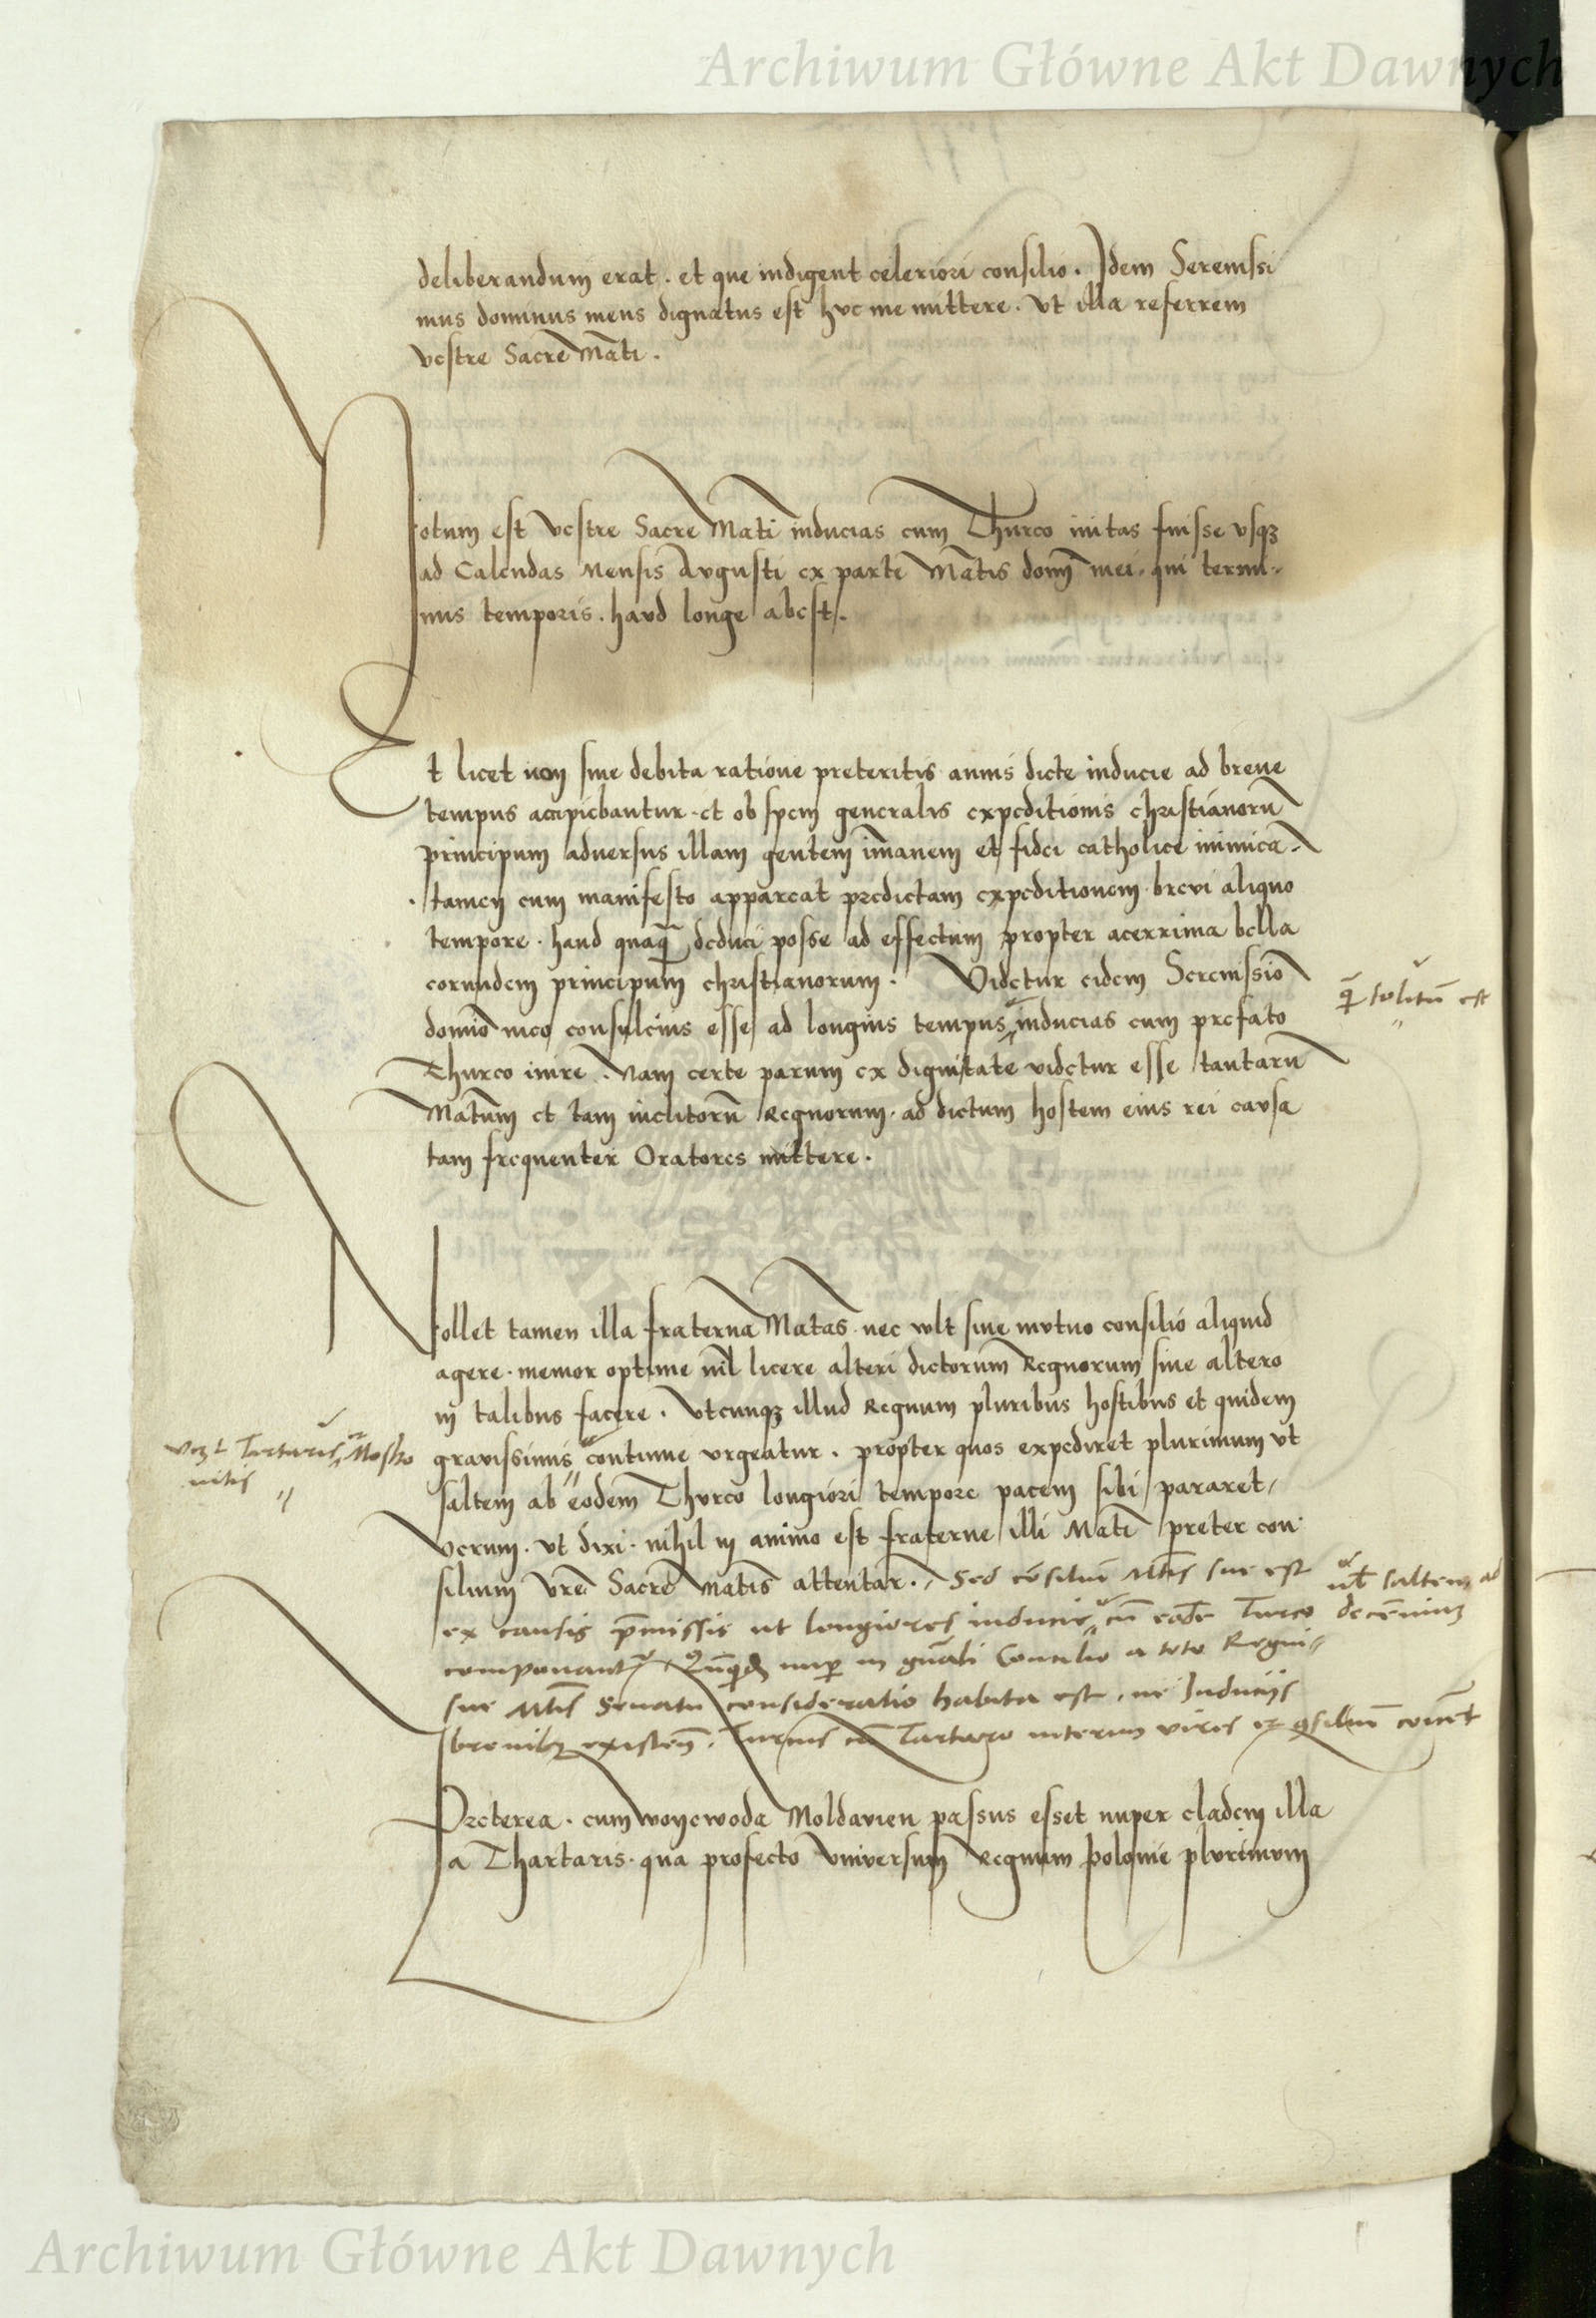 Archiwum Główne Akt Dawnych
deliberandum erat. et que indigent celeriori consilio. Idem Serenissi
mus dominus meus dignatus est huc me mittere. Ut illa referrem
vestre Sacre Mati.
Notum est vestre Sacre Mati inducias cum Thurco initas fuisse usqꝫ
ad Calendas Mensis Augusti ex parte Matis domi mei. qui termi-
nus temporis. haud longe abest.
Et licet non sine debita ratione preteritis annis dicte inducie ad breve
tempus accipiebantur. et ob spem generalis expeditionis christianorū
principum adversus illam gentem īmanem et fidei catholice inimicā
tamen cum manifesto appareat predictam expeditionem brevi aliquo
tempore. haud quaqꝫ deduci posse ad effectum propter acerrima bella
eorundem principum christianorum. Videtur eidem Serenissio
domio meo consulcius esse ad longius tempus inducias cum prefato
q̄ solitū est
Thurco inire. Nam certe parum ex dignitate videtur esse tantarū
Matum et tam inclitorū Regnorum. ad dictum hostem eius rei causa
tam frequenter Oratores mittere.
Nollet tamen illa fraterna Matas. nec vlt sine mutuo consilio aliquid
agere. memor optime nil licere alteri dictorum Regnorum sine altero
in talibus facere. Utcunqꝫ illud Regnum pluribus hostibus et quidem
gravissimis continue urgeatur. propter quos expediret plurimum ut
vczt Tartaris et Mosko
vitis
saltem ab eodem Thurco longiori tempore pacem sibi pararet,
Verum. ut dixi. nihil in animo est fraterne illi Mati preter con
silium vrē Sacre Matis attentar. Sed cōsiliū Mtis sue est
ex causis p̄missis ut longiores inducie cū eodē Turco
vl saltem ad
decēnium
componantr, nup in gnāli Concilio a toto Regni
sue Mtis Senatu consideratio habita est, ne Induciis
brevibꝫ existen. Turcus cū Tartaro interim vires et cōsiliū
Preterea. cum woyewoda Moldavien passus esset nuper cladem illā
a Thartaris. qua profecto universum Regnum polonie plurimum
Archiwum Główne Akt Dawnych